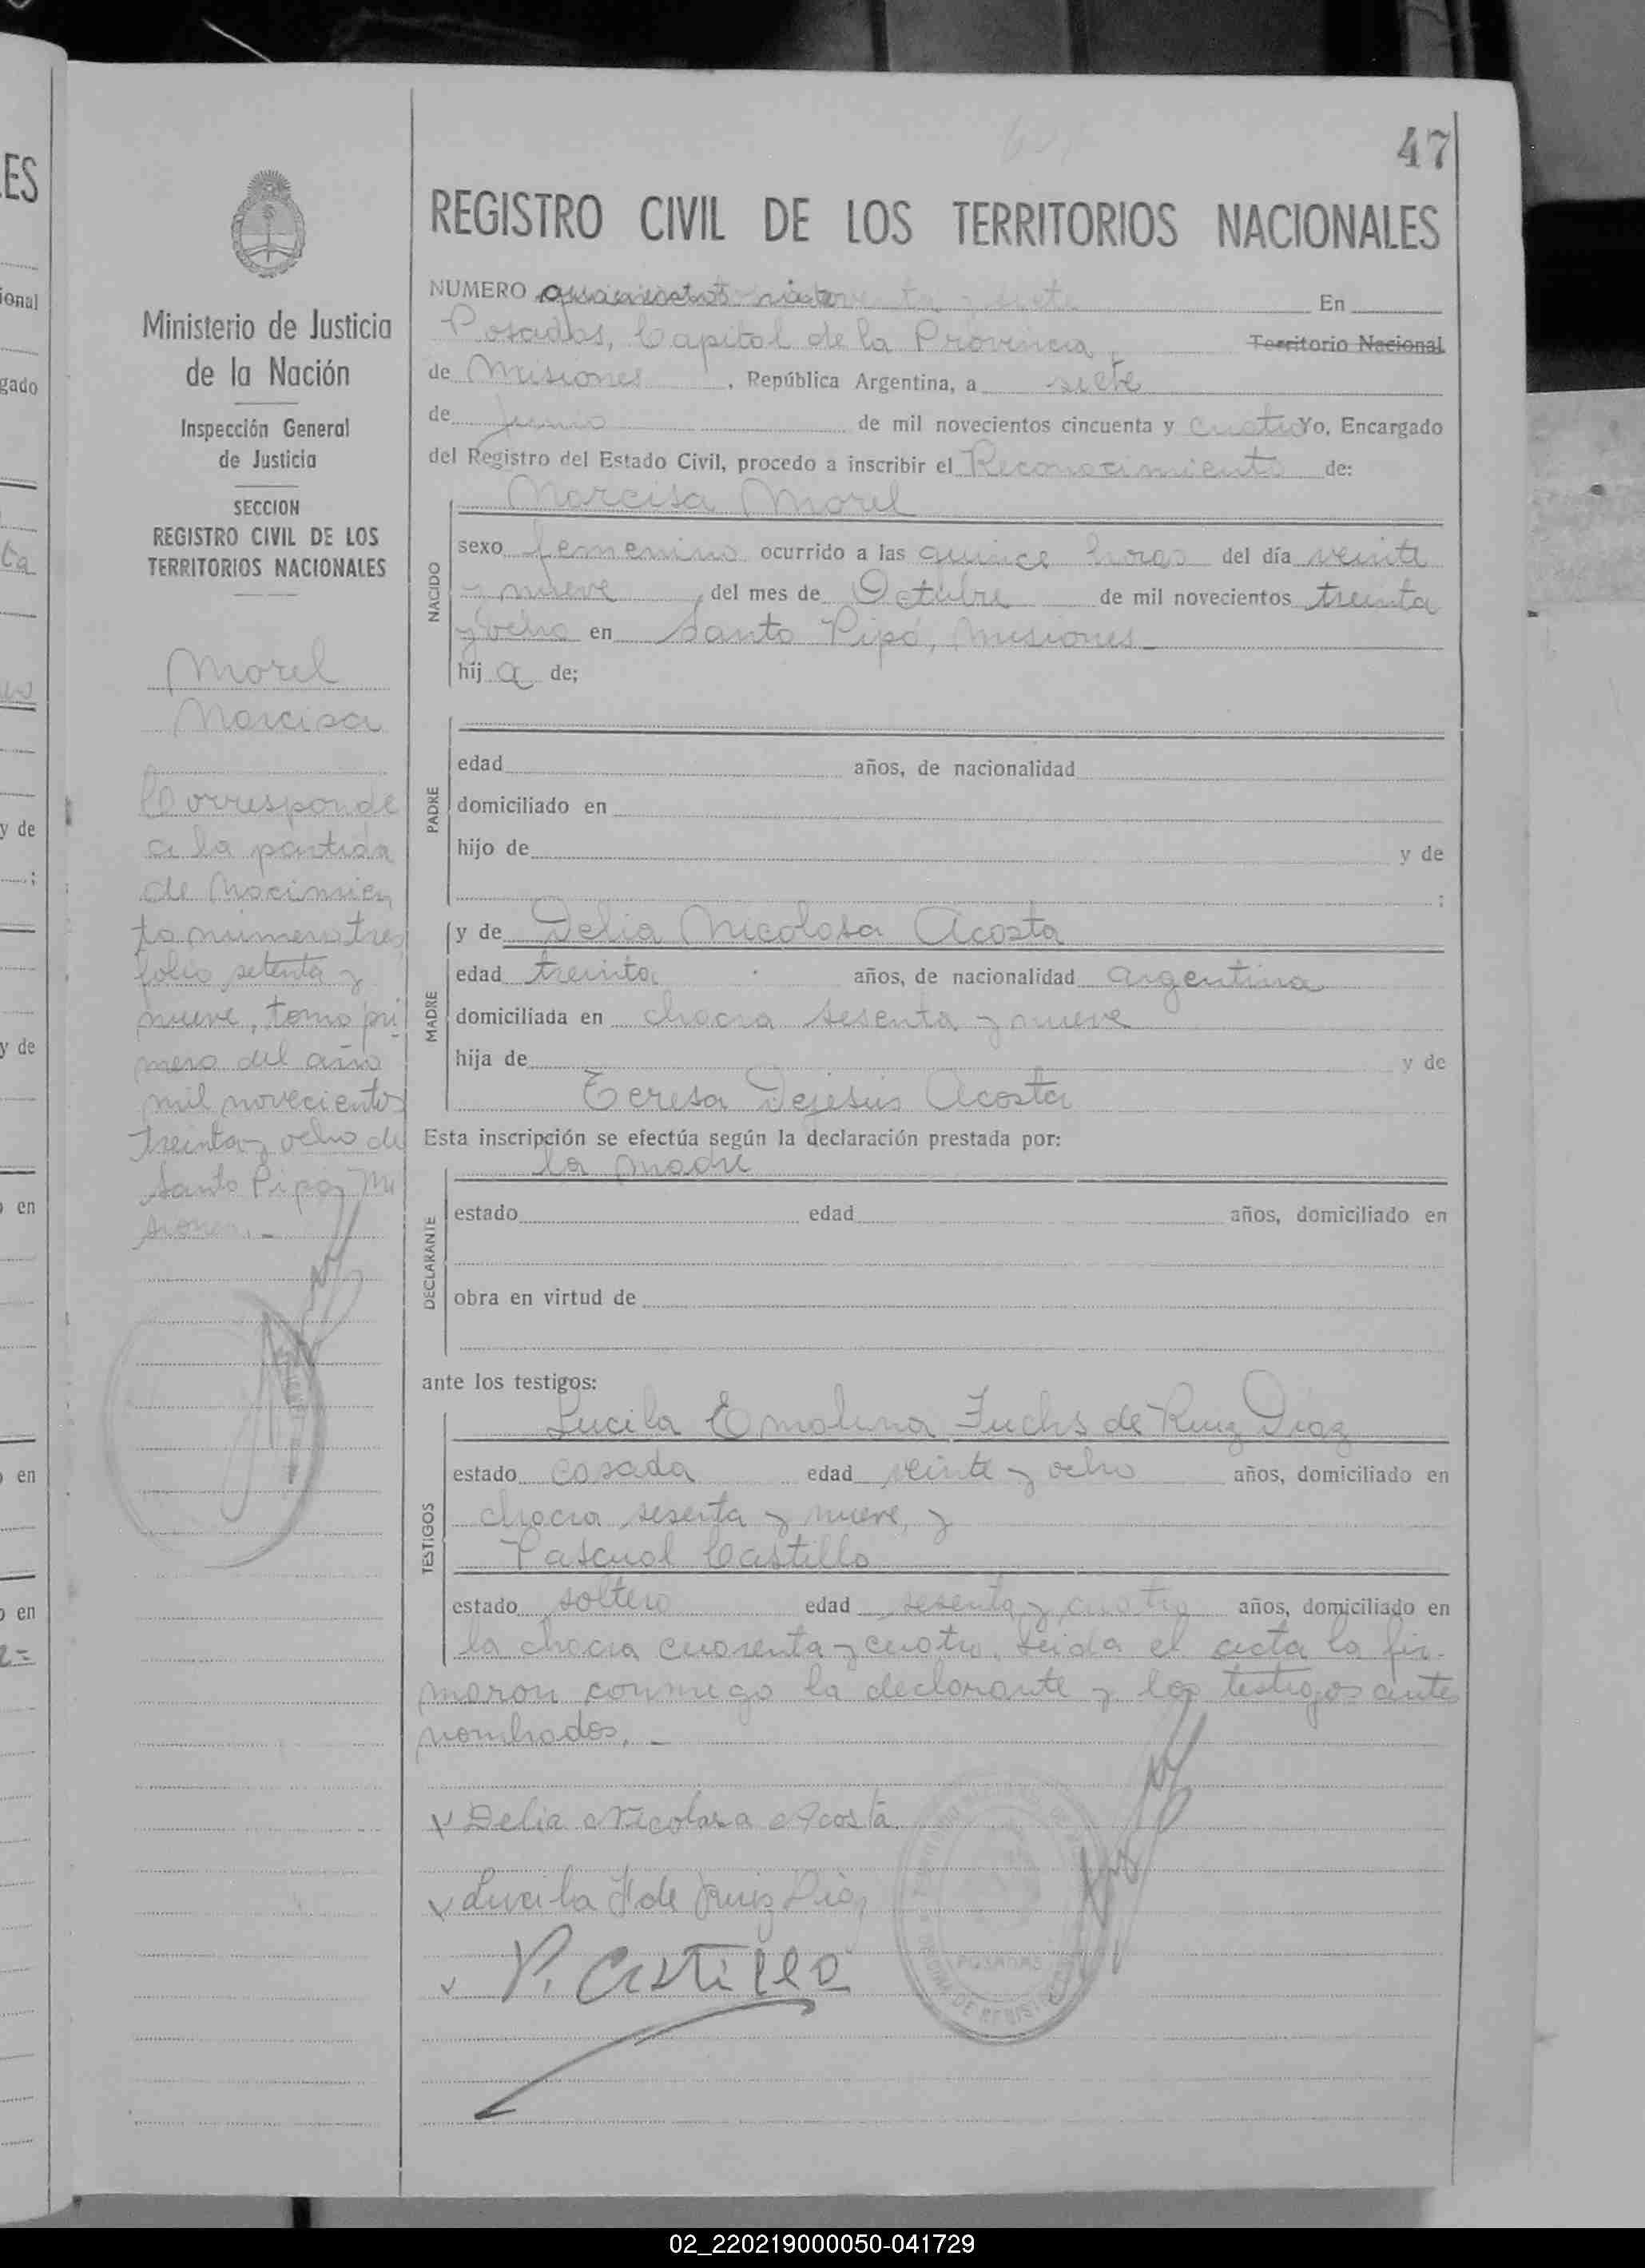 47
REGISTRO CIVIL DE LOS TERRITORIOS NACIONALES
Ministerio de Justicia
de la Nación
Inspección General
de Justicia
SECCION
REGISTRO CIVIL DE LOS
TERRITORIOS NACIONALES
Morel
Narcisa
Corresponde
a la partida
de Nacimien
to número tres
folio setenta y
nueve, tomo pri
mero del año
mil novecientos
treinta y ocho de
Santo Pipó, Mi
siones.
NUMERO En
Posadas, Capital de la Provincia, Territorio Nacional
de Misiones, República Argentina, a siete
de Junio de mil novecientos cincuenta y cuatro Yo, Encargado
del Registro del Estado Civil, procedo a inscribir el Reconocimiento de:
Narcisa Morel
NACIDO
sexo femenino ocurrido a las quince horas del día veinte
y nueve del mes de Octubre de mil novecientos treinta
y ocho en Santo Pipó, Misiones
hij a de;
PADRE
edad años, de nacionalidad
domiciliado en
hijo de y de
;
y de Delia Nicolasa Acosta
MADRE
edad treinta años, de nacionalidad argentina
domiciliada en chacra sesenta y nueve
hija de y de
Teresa Dejesús Acosta
Esta inscripción se efectúa según la declaración prestada por:
la madre
DECLARANTE
estado edad años, domiciliado en
obra en virtud de
ante los testigos:
Lucila Emolina Fuchs de Ruiz Diaz
TESTIGOS
estado casada edad veinte y ocho años, domiciliado en
chacra sesenta y nueve, y
Pascual Castillo
estado soltero edad sesenta y cuatro años, domiciliado en
la chacra cuarenta y cuatro. Leida el acta la fir-
maron conmigo la declarante y los testigos antes
nombrados.
Delia Nicolasa Acosta
Lucila F de Ruiz Diaz
P. Castillo
POSADAS
02_220219000050-041729